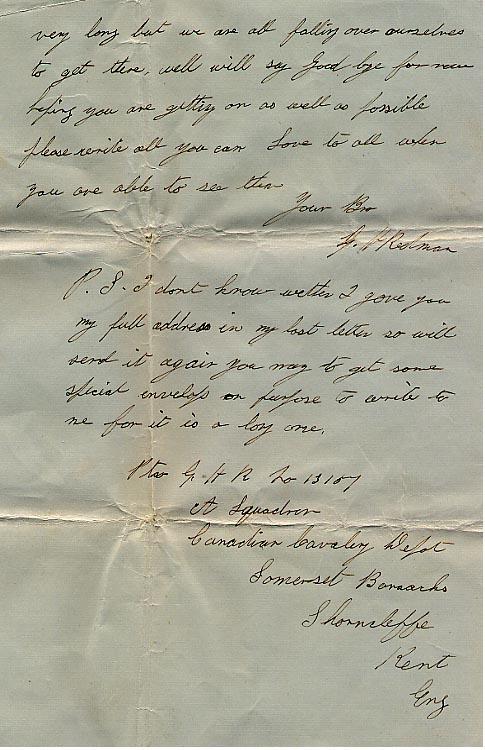 very long but we are all falling over ourselves
to get there, well will say Good bye for now
hoping you are getting on as well as possible
please write all you can Love to all when
you are able to see them
Your Bro
G. H Redman
P. S. I dont know wether I gave you
my full address in my last letter so will
send it again you may to get some
special envelops on purpose to write to
me for it is a long one.
Pte G. H R No 13107
A Squadron
Canadian Cavalry Depot
Somerset Barracks
Shorncleffe
Kent
Eng